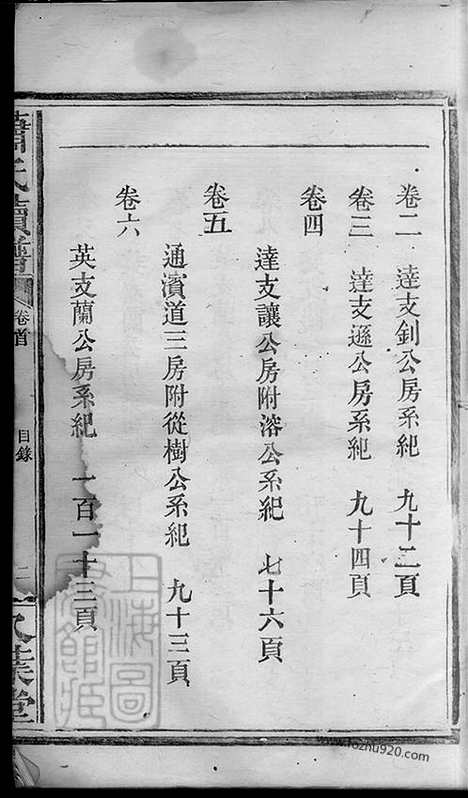 卷二　達支釗公房系紀　九十二頁
卷三　達支遜公房系紀　九十四頁
卷四
達支讓公房附溶公系紀　七十六頁
卷五
通濱道三房附從樹公系紀　九十三頁
卷六
英支蘭公房系紀　一百一十三頁
蕭氏續譜　卷首　目錄　二
上海圖書館藏
www.fozhu920.com